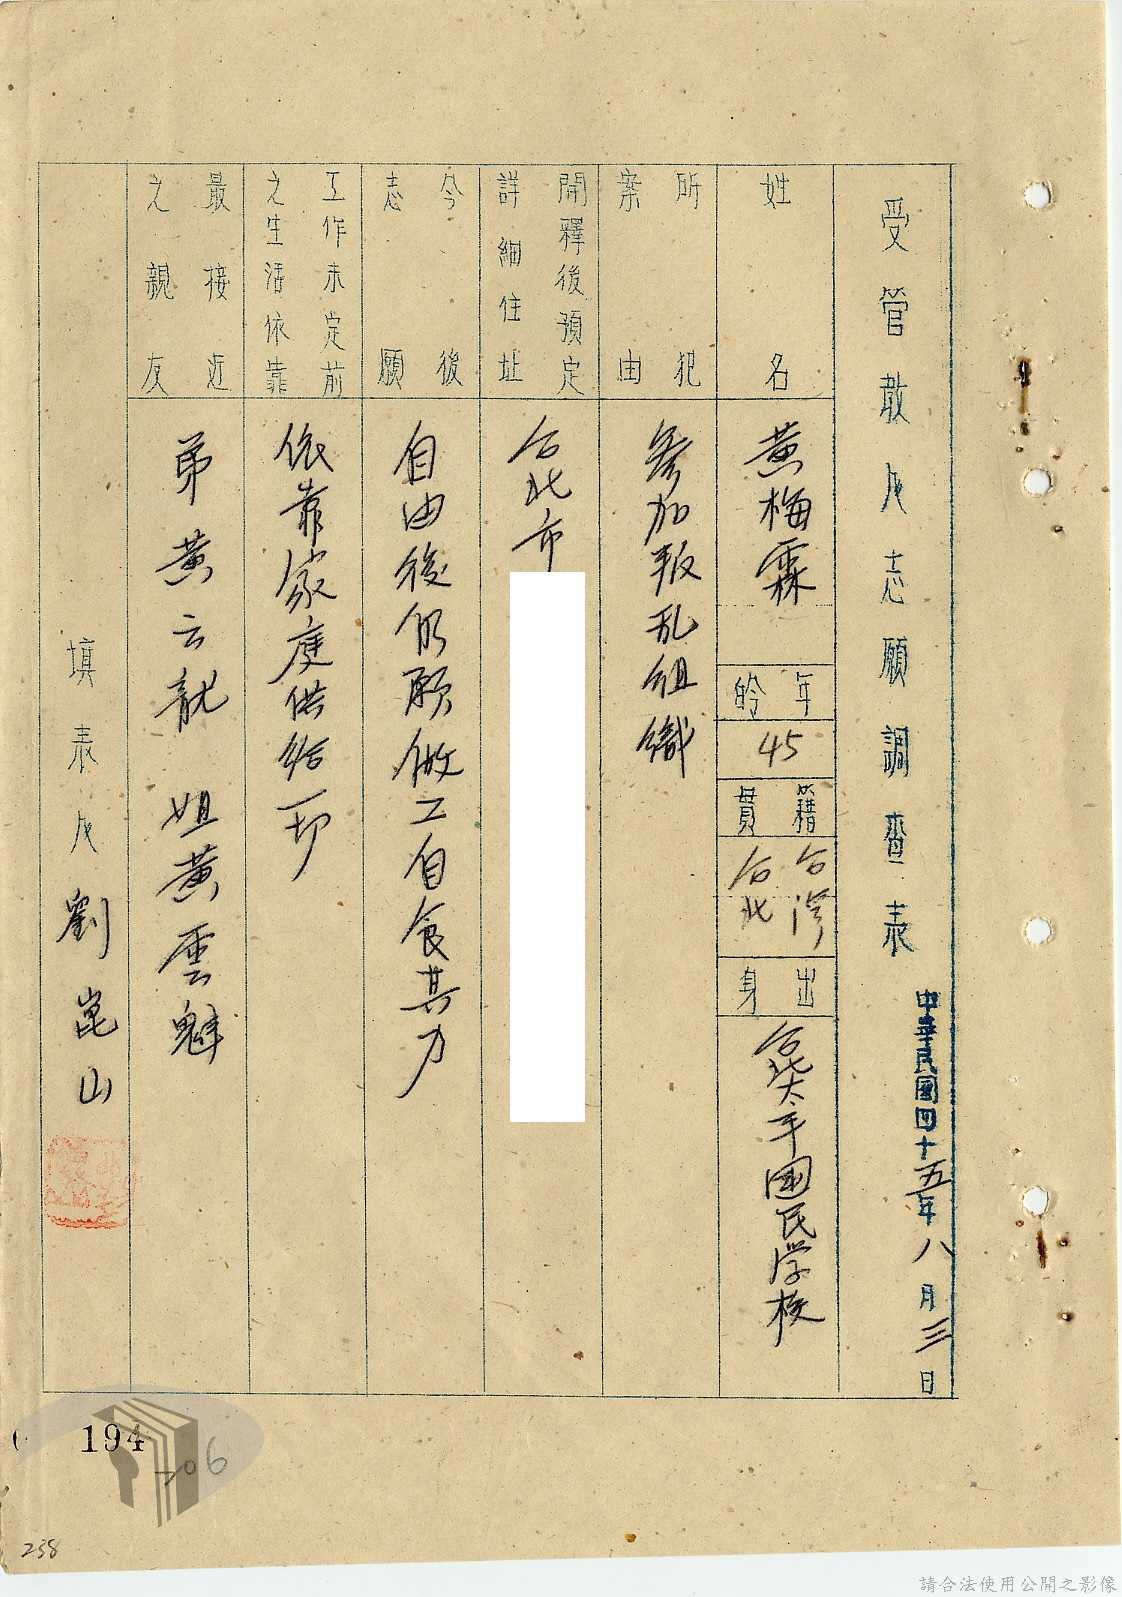 受管教人志願調查表
中華民國四十五年八月三日
姓名
黃梅霖
年齡
45
籍貫
台灣
台北
出身
台北太平國民学校
所犯
案由
參加叛乱組織
開釋後預定
詳細住址
台北市
今後
志願
自由後仍願做工自食其力
工作未定前
之生活依靠
依靠家庭供給一切
最接近
之親友
弟黃云龍 姐黃雲魁
填表人 劉崑山
194
206
238
請合法使用公開之影像